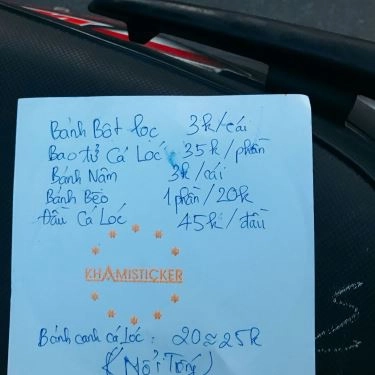 Bánh Bột lọc 3k/cái
Bao tử Cá Lóc 35k/phần
Bánh Nậm 3k/cái
Bánh Bèo 1 phần/20k
Đầu Cá Lóc 45k/đầu
KHAMISTICKER
Bánh canh cá Lóc: 20≈25k
(Nồi Trống)